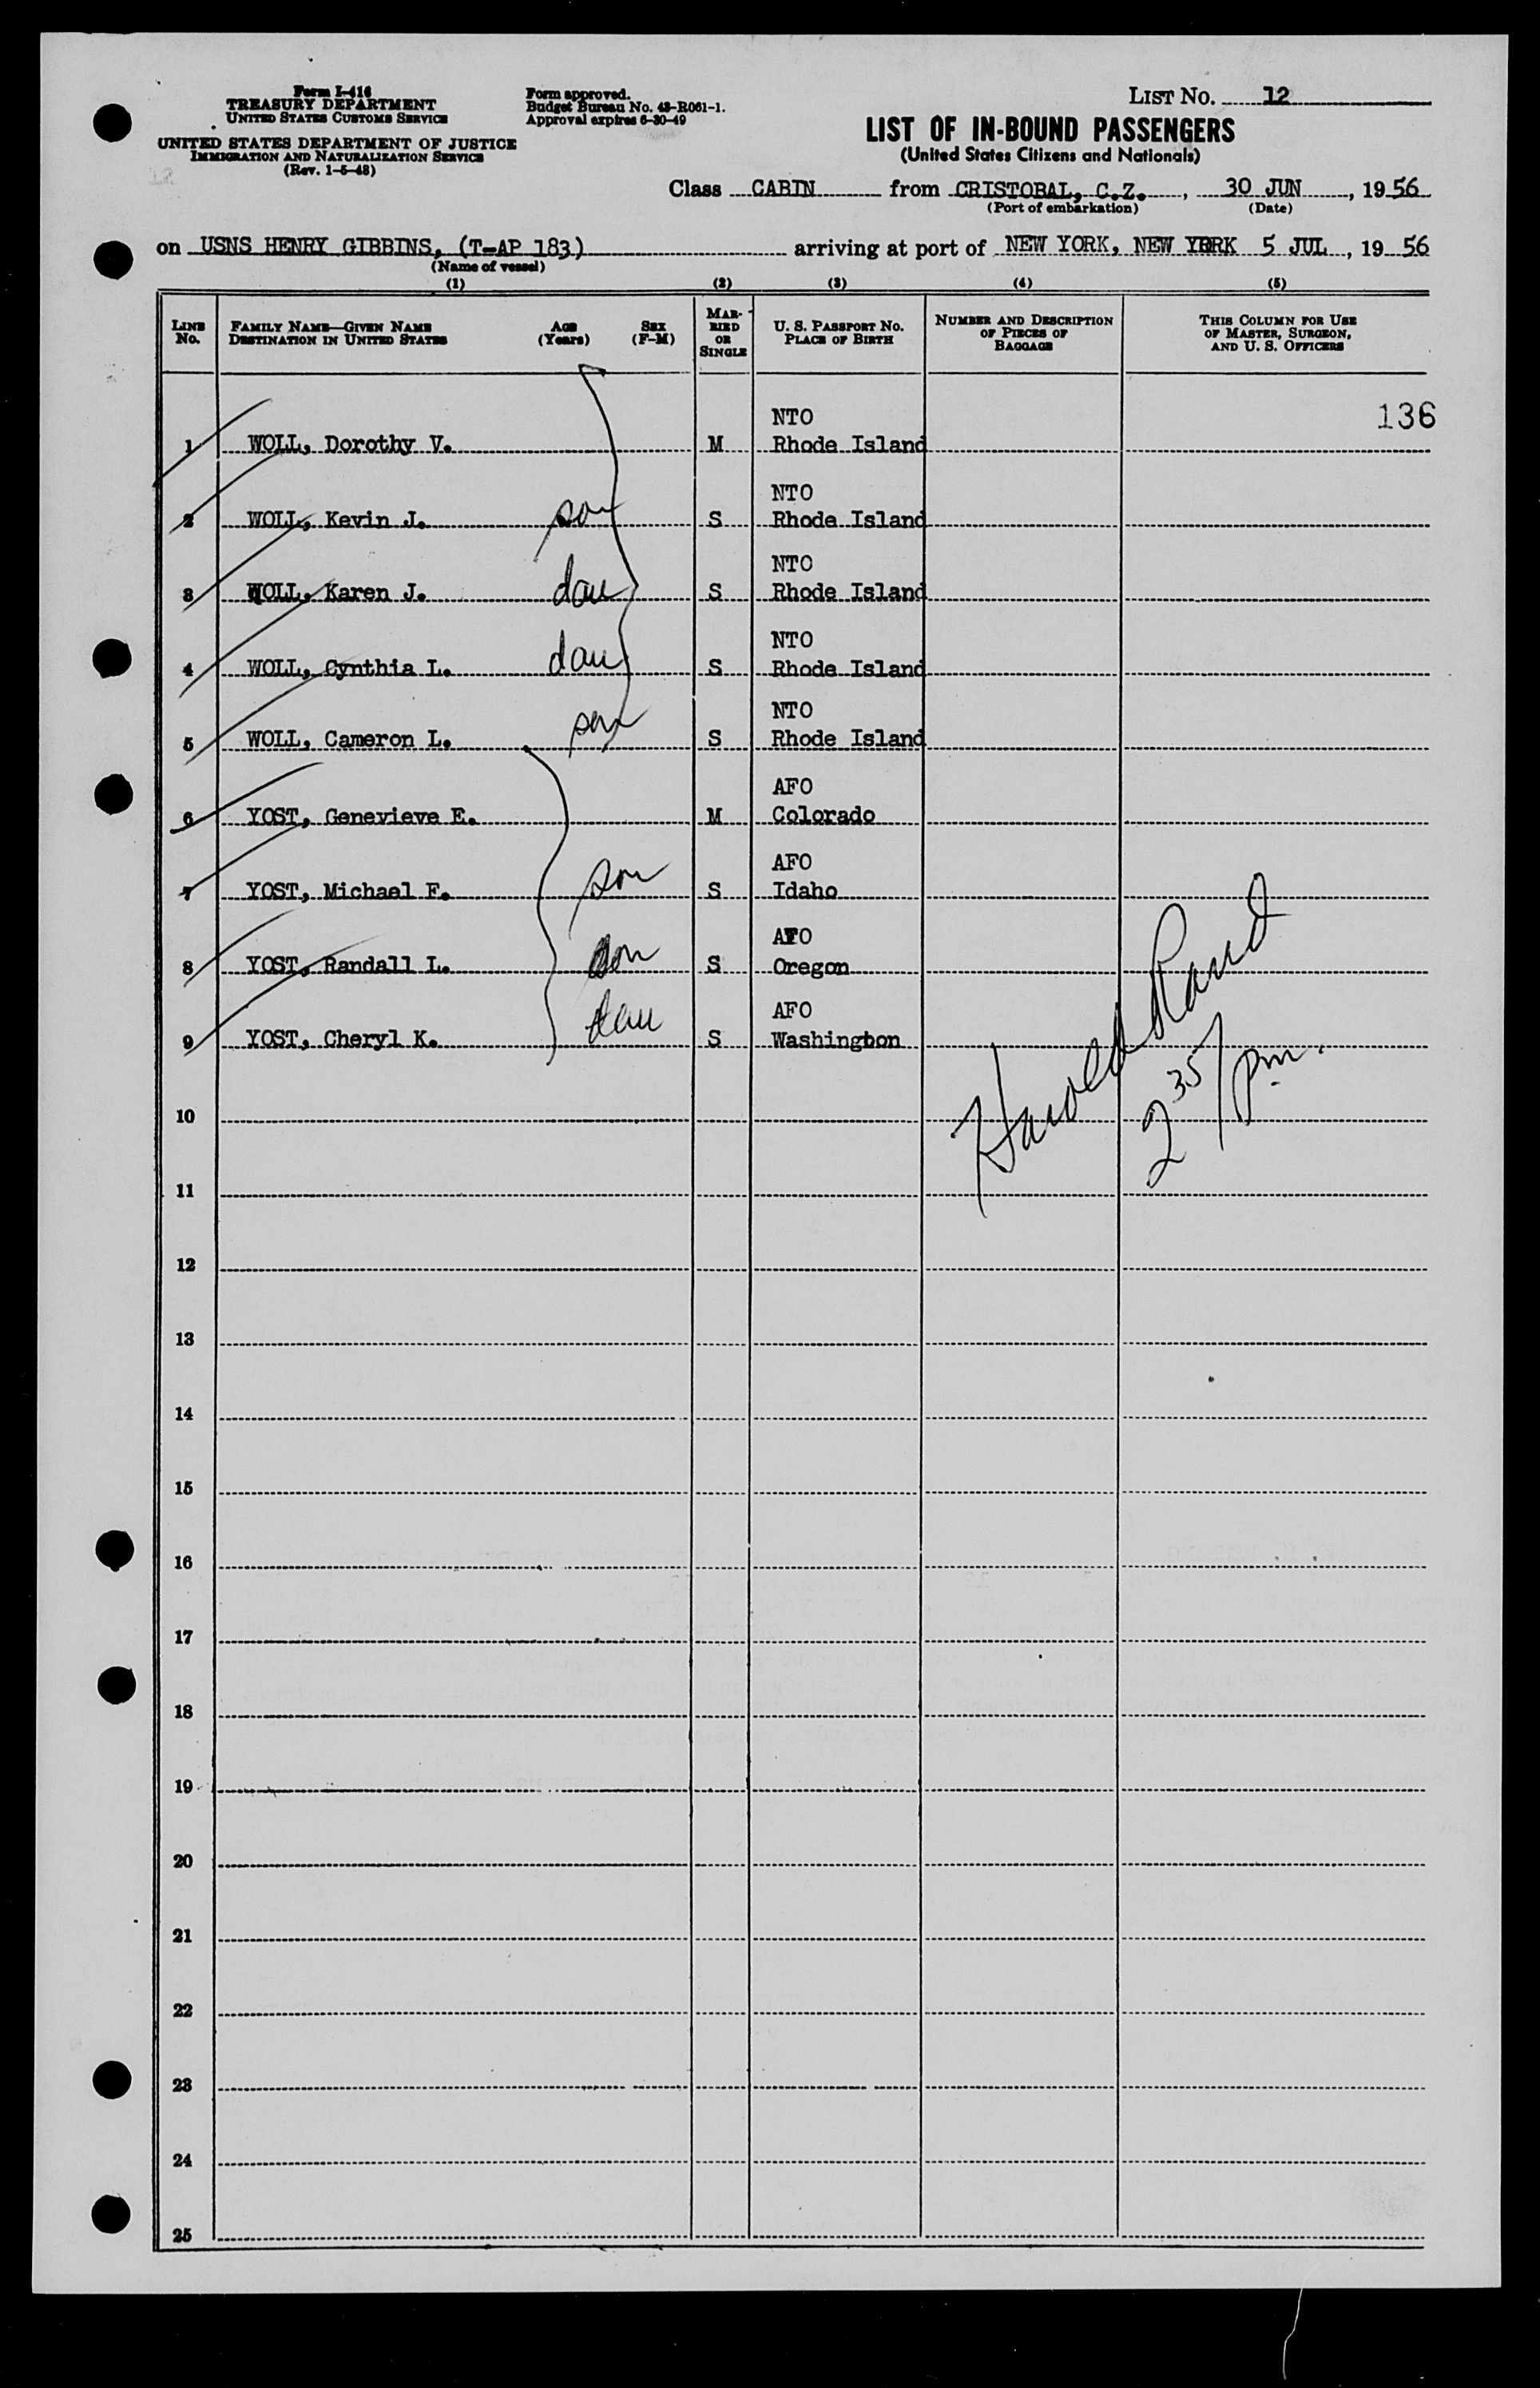 Form I-416
TREASURY DEPARTMENT
UNITED STATES CUSTOMS SERVICE
UNITED STATES DEPARTMENT OF JUSTICE
IMMIGRATION AND NATURALIZATION SERVICE
(Rev. 1-5-48)
Form approved.
Budget Bureau No. 43-R061-1.
Approval expires 6-30-49
LIST NO. 12
LIST OF IN-BOUND PASSENGERS
(United States Citizens and Nationals)
Class CABIN from CRISTOBAL, C.Z., 30 JUN, 1956
(Port of embarkation) (Date)
on USNS HENRY GIBBINS, (T-AP 183) arriving at port of NEW YORK, NEW YORK 5 JUL, 1956
(Name of vessel)
(1) (2) (3) (4) (5)
LINE NO. FAMILY NAME—GIVEN NAME DESTINATION IN UNITED STATES AGE (Years) SEX (F-M) MARRIED OR SINGLE U. S. PASSPORT NO. PLACE OF BIRTH NUMBER AND DESCRIPTION OF PIECES OF BAGGAGE THIS COLUMN FOR USE OF MASTER, SURGEON, AND U. S. OFFICERS
136
NTO
1 WOLL, Dorothy V. M Rhode Island
NTO
2 WOLL, Kevin J. son S Rhode Island
NTO
3 WOLL, Karen J. dau S Rhode Island
NTO
4 WOLL, Cynthia L. dau S Rhode Island
NTO
5 WOLL, Cameron L. son S Rhode Island
AFO
6 YOST, Genevieve E. M Colorado
AFO
7 YOST, Michael F. son S Idaho
AFO
8 YOST, Randall L. son S Oregon
AFO
9 YOST, Cheryl K. dau S Washington
Harold Rand
2 35/pm.
10
11
12
13
14
15
16
17
18
19
20
21
22
23
24
25